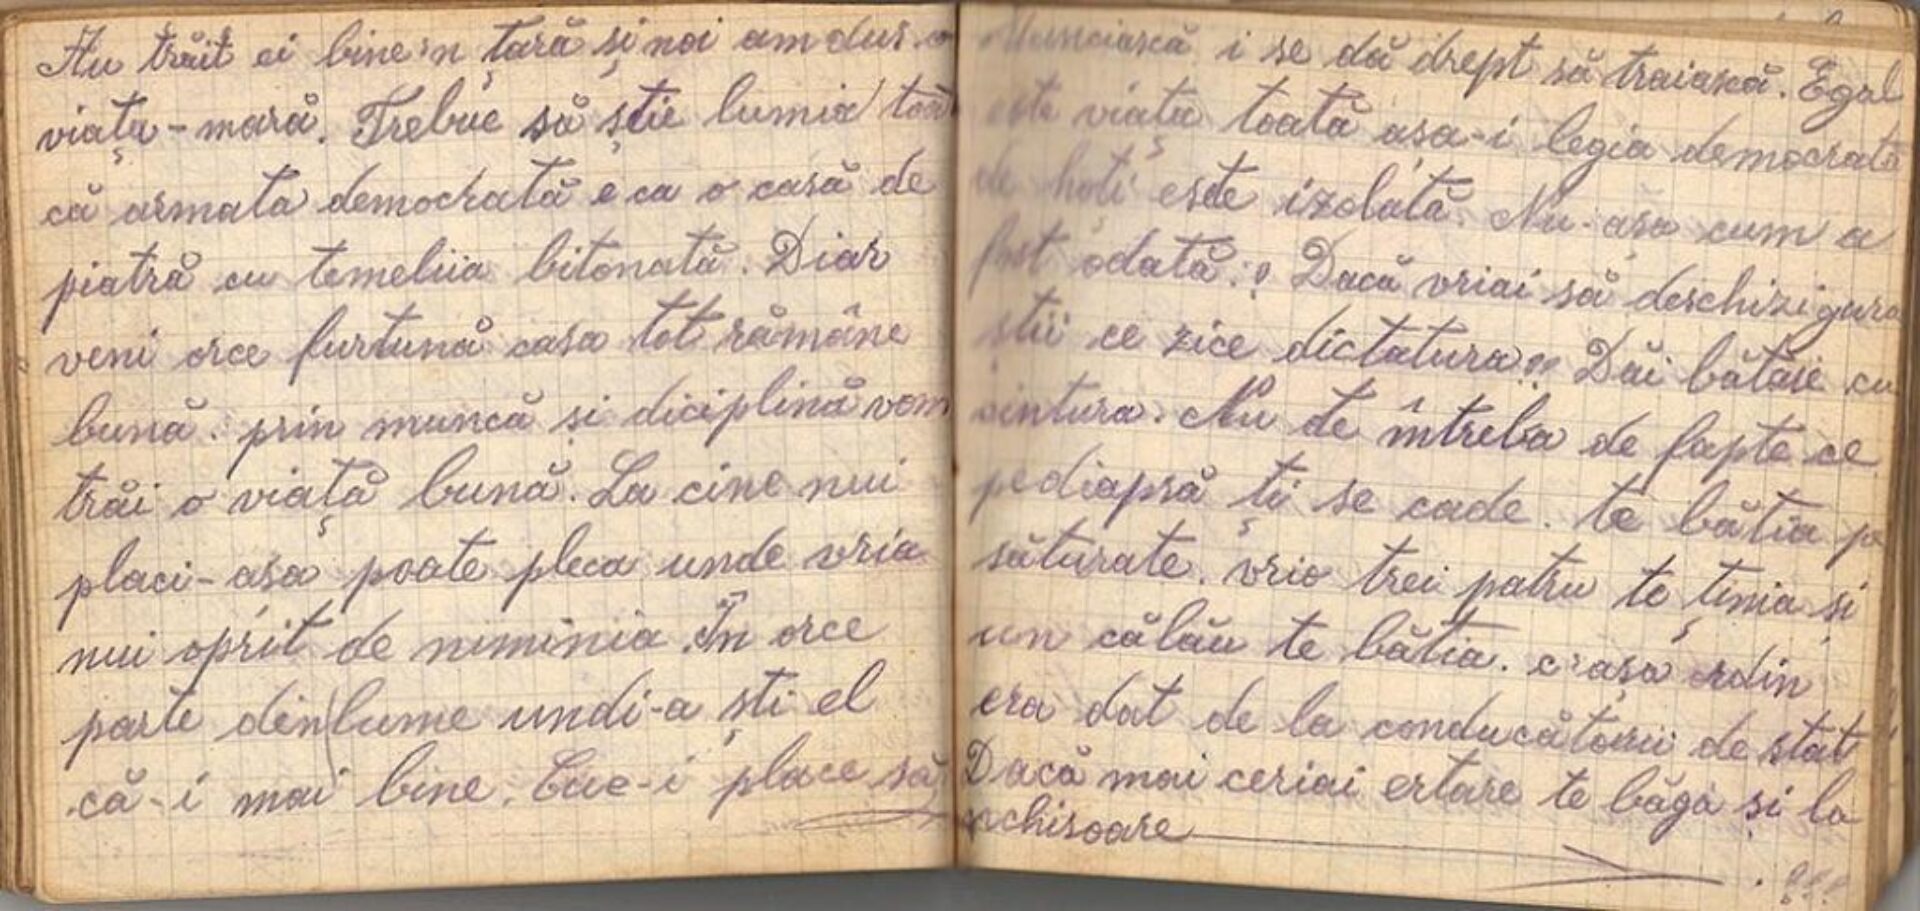 Au trăit ei bine'n țară și noi am dus o
viațu-mară. Trebue să știe lumia toat
că armata democrată e ca o casă de
piatră cu temeliia bitonată. Diar
veni orce furtună casa tot rămâne
bună. prin muncă și diciplină vom
trăi o viață bună. La cine nui
placi-asa poate pleca unde vria
nui oprit de niminia. În orce
parte din lume undi-a ști el
că-i mai bine. Cue-i place să
Munciască i se dă drept să traiască. Egal
este viața toată asa-i legia democrată
de hoți este izolată. Nu-așa cum a
fost odată: Dacă vriai să deschizi gura
știi ce zice dictatura" Dăi bătăie cu
cintura. Nu te întreba de fapte ce
pediapsă ți se cade. te bătia pe
săturate. vrio trei patru te ținia și
un călău te bătia. c-așa ordin
era dat de la conducătorii de stat
Dacă mai ceriai ertare te băga și la
nchisoare